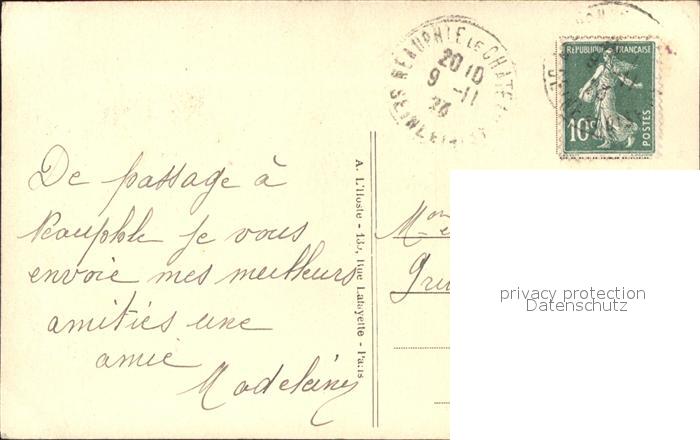 NEAUPHLE LE CHATEAU
20 10
9 -11
SEINE ET
REPUBLIQUE FRANÇAISE
10c
POSTES
De passage à
Neauphle je vous
envoie mes meilleurs
amitiés une
amie
Madeleine
A. L'Hoste - 139, Rue Lafayette - Paris
privacy protection
Datenschutz